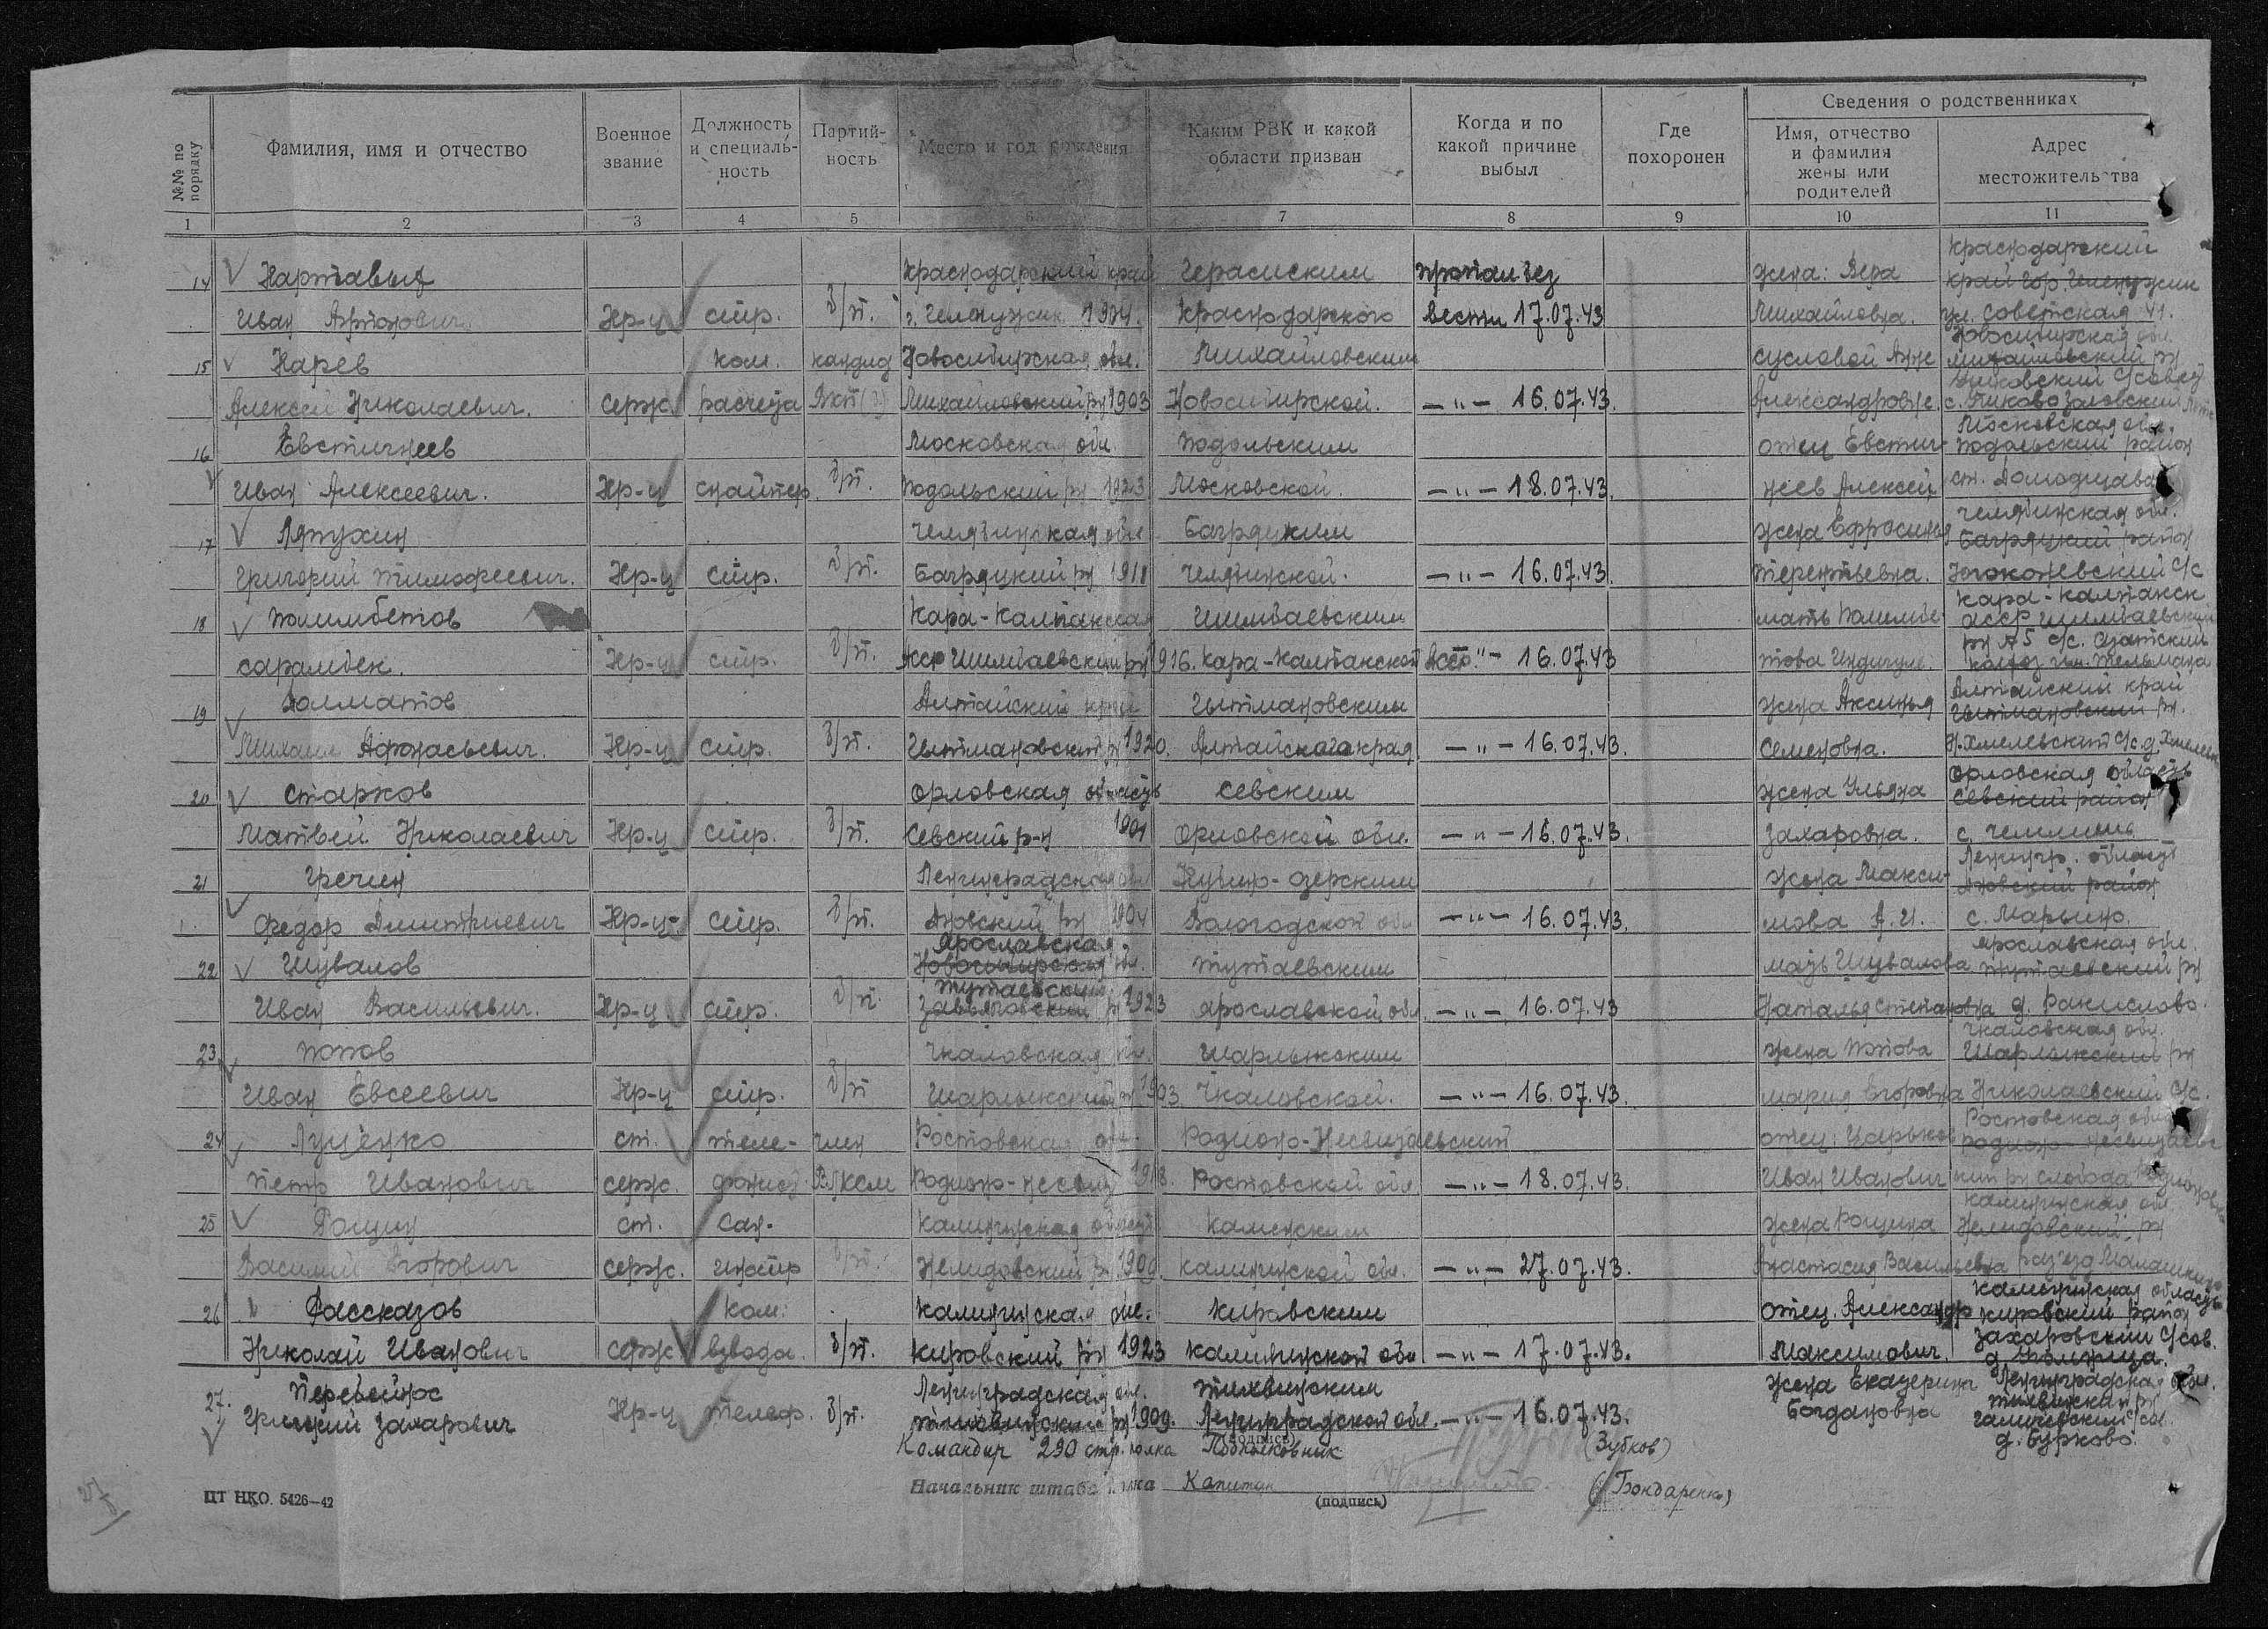 Сведения о родственниках
№№ по порядку
Фамилия, имя и отчество
Военное звание
Должность и специаль-ность
Партий-ность
Место и год рождения
Каким РВК и какой области призван
Когда и по какой причине выбыл
Где похоронен
Имя, отчество и фамилия жены или родителей
Адрес местожительства
1 2 3 4 5 6 7 8 9 10 11
Краснодарский
14 Краснодарский край пропал без жена: Вера край гор.
Иван Кр-ц стр. б/п. г. 1924. Краснодарского вести 17.07.43 Михайловна. ул. Советская 41.
Новосибирская обл.
15 Карев ком. кандид Новосибирская обл. Михайловским Сусловой Анне Михайловский рн
Алексей Николаевич. серж. расчета Михайловский рн 1903 Новосибирской. —"— 16.07.43. Александровне.
Московская обл.
16 Евстигнеев Московская обл Подольским отец Евстиг- Подольский район
Иван Алексеевич. Кр-ц снайпер. б/п. Подольский рн 1923 Московской. —"— 18.07.43. неев Алексей ст.
Челябинская обл.
17 Челябинская обл Багрякским жена Ефросинья Багрякский район
Григорий Тимофеевич. Кр-ц стр. б/п. 1911 Челябинской. —"— 16.07.43. Терентьевна. с/с
Кара-Калпакск
18 Полимбетов Кара-Калпакская Чимбаевским мать Полимбе- АССР Чимбаевский
сарамбек. Кр-ц стр. б/п. АССР Чимбаевский рн 1916. Кара-Калпакской АССР. —"— 16.07.43 това рн №5 с/с.
колхоз им. Тельмана
Алтайский край
19 Долматов Алтайский край Тытмановским жена Аксинья Тытмановский рн.
Михаил Афанасьевич. Кр-ц стр. б/п. Тытмановский рн 1920. Алтайского края —"— 16.07.43. Семеновна. Н.Хмелевский с/с. д.
Орловская область
20 Старков Орловская область Севским жена Ульяна Севский район
Матвей Николаевич Кр-ц стр. б/п. Севский р-н 1901 Орловской обл. —"— 16.07.43. Захаровна. с.
Ленингр. область
21 Гречин Ленинградская обл Кубино-Озерским жена Макси- район
Федор Дмитриевич Кр-ц стр. б/п. рн 1904 Вологодской обл —"— 16.07.43. мова А.И. с. Марьино.
Ярославская Ярославская обл.
22 Шувалов Новосибирская обл. Тутаевским мать Шувалова Тутаевский рн
Тутаевский
Иван Васильевич. Кр-ц стр. б/п. Завьяловский рн 1923 Ярославской обл. —"— 16.07.43 Наталья Степановна д.
Чкаловская обл.
23 Попов Чкаловская обл. Шарлыкским жена Попова Шарлыкский рн
Иван Евсеевич Кр-ц стр. б/п Шарлыкский рн 1903 Чкаловской. —"— 16.07.43. Мария Егоровна Николаевский с/с.
Ростовская обл
24 Луценко ст. теле- член Ростовская обл. Родионо-Несветаевский отец: Родионо-Несветаевс
Петр Иванович серж. фонист ВЛКСМ Родионо-Несвет 1918. Ростовской обл —"— 18.07.43. Иван Иванович кий рн слобода
Калининская обл
25 Рощин ст. сан- Калининская область жена Рощина Нелидовский рн
Василий Егорович серж. инстр б/п. Нелидовский рн 1900. Калининской обл. —"— 27.07.43. Анастасия Васильевна раз'езд
Калининская область
26 Рассказов ком. Калининская обл. Кировским отец Александр Кировский район
Николай Иванович серж. взвода. б/п. Кировский рн 1923 Калининской обл —"— 17.07.43. Максимович. Захаровский с/сов.
27. Перебейнос Ленинградская обл. Тихвинским жена Екатерина Ленинградская обл.
Григорий Захарович Кр-ц телеф. б/п. Тихвинский рн 1909. Ленинградской обл. —"— 16.07.43. Богдановна Тихвинский рн
д. Бурково.
Командир 290 стр. полка Подполковник (подпись) (Зубков)
Начальник штаба полка Капитан (подпись) (Бондаренко)
ЦТ НКО. 5426—42